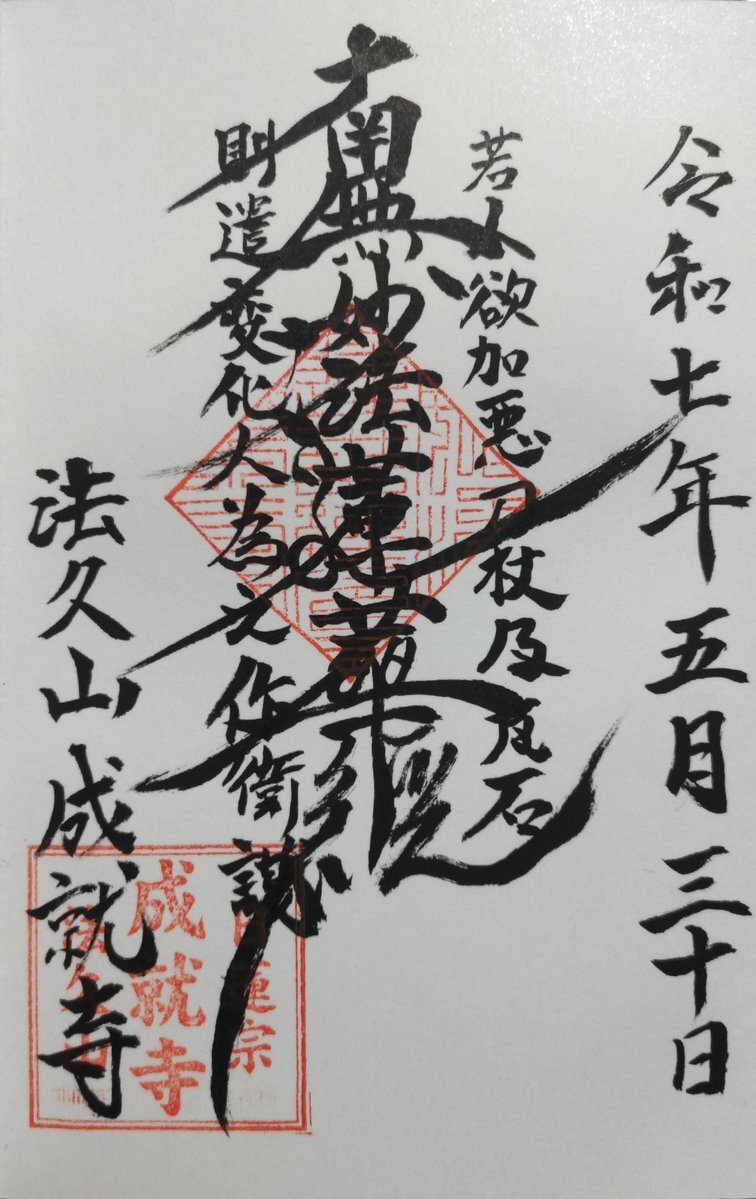 令和七年五月三十日
若人欲加悪刀杖及瓦石
南無妙法蓮華経
則遣変化人為之作衛護
法久山成就寺
日蓮宗
成就寺
法久山